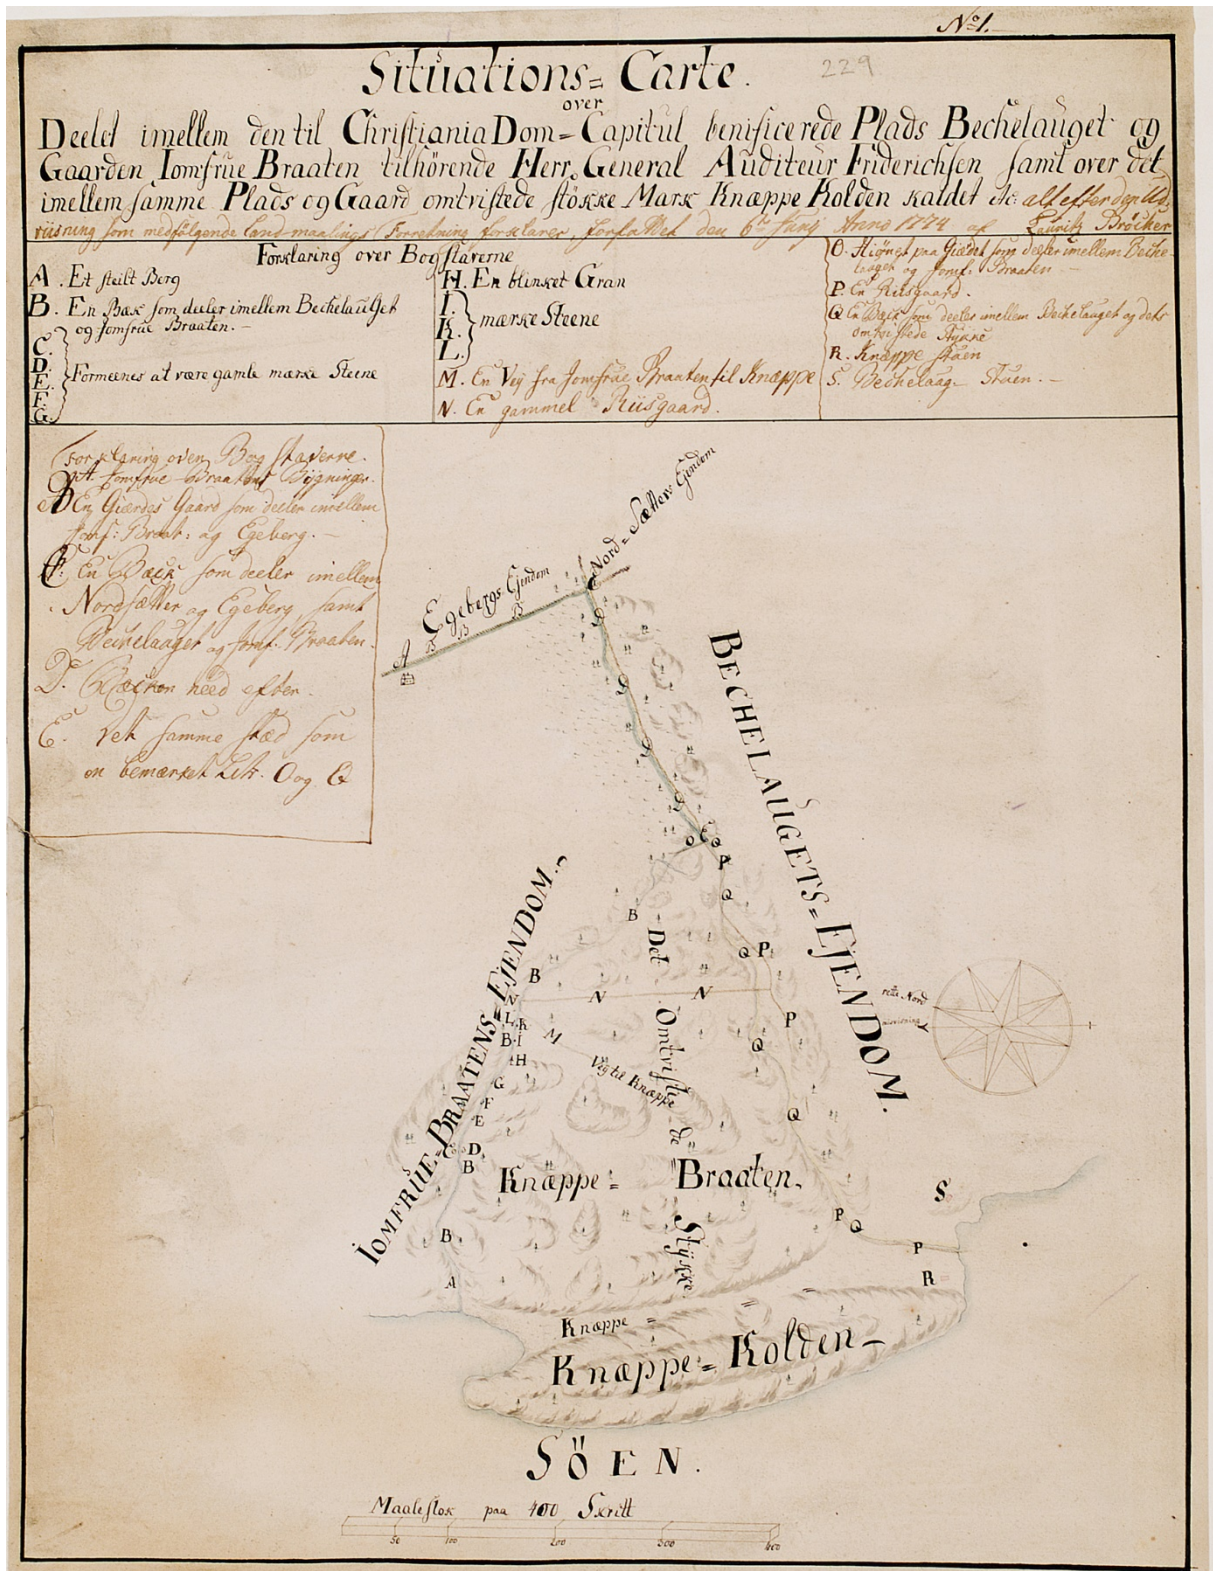 No 1.
229
Situations = Carte.
over
Deelet imellem den til Christiania Dom = Capitul benificerede Plads Bechelauget og
Gaarden Iomfrue Braaten tilhörende Herr General Auditeur Friderichsen samt over det
imellem samme Plads og Gaard omtvistede stökke Mark Knæppe Kolden kaldet etc: alt efter den Ud-
viisning som medfølgende Land-maalings Forretning forklarer, forfattet den 6te Junij Anno 1774 af Lauritz Bröcker
Forklaring over Bogstaverne
A. Et steilt Berg
B. En Bæk som deeler imellem Bechelauget
og Jomfrue Braaten. -
C.
D.
E. Formeenes at være gamle mærke Steene
F.
G.
H. En blinket Gran
I.
K. mærke Steene
L.
M. En Vej fra Jomfrue Braaten til Knæppe
N. En gammel Riisgaard.
O. Hiörnet paa Giædet som deeler imellem Beche-
lauget og Jomf: Braaten -
P. En Riisgaard.
Q En Bæck som deeler imellem Bechelauget og dets
omtvistede Stykke
R. Knæppe stuen
S. Bechelaug - Stuen. -
Forklaring over Bogstaverne.
A. Jomfrue Braatens Bygninger.
B En Giærdes Gaard som deeler imellem
Jomf: Braat: og Egeberg. -
C: En Bæck som deeler imellem
Nordsætter og Egeberg, samt
Bechelauget og Jomf. Braaten.
D. Bæcken need efter.
E. vet samme stæd som
en bemærket Litr. O og Q
Nord = Sætters Ejendom
Egebergs Ejendom
A
B
B
B
C
D
D
D
D
BECHELAUGETS = EJENDOM.
IOMFRUE = BRAATENS = EJENDOM.
O
Q
Q
Q
B
Det Omtvistede Stÿkke
Q P
B
N
N
L K
M
P
B I
Q
H
Vej til Knæppe
G
F
E
Q
C D
B
Knæppe = Braaten.
S
P Q
B
P
R
A
rette Nord
Knæppe =
Knæppe = Kolden -
SÖEN.
Maalestok paa 400 Skritt
50 100 200 300 400